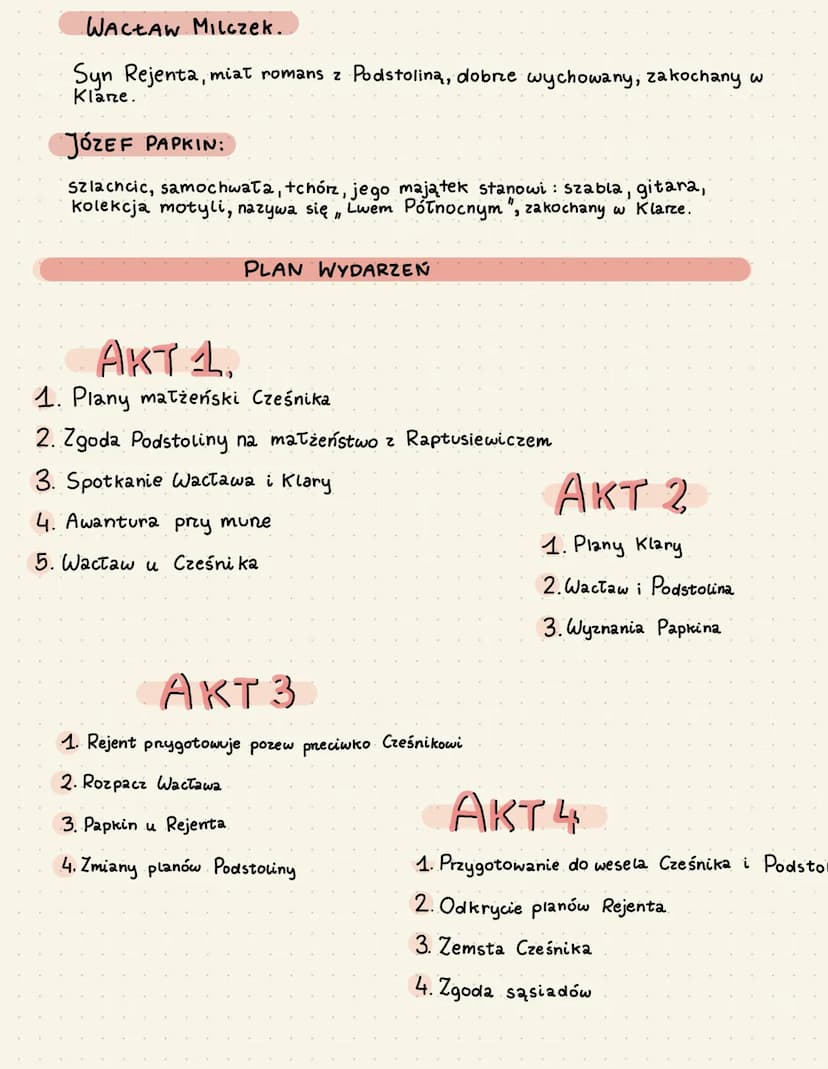 WACŁAW MILCZEK.
Syn Rejenta, miał romans z Podstoliną, dobrze wychowany, zakochany w
Klarze.
JÓZEF PAPKIN:
szlachcic, samochwała, tchórz, jego majątek stanowi : szabla, gitara,
kolekcja motyli, nazywa się „Lwem Północnym", zakochany w Klarze.
PLAN WYDARZEŃ
AKT 1.
1. Plany małżeński Cześnika
2. Zgoda Podstoliny na małżeństwo z Raptusiewiczem
3. Spotkanie Wacława i Klary
4. Awantura przy murze
5. Wacław u Cześnika
AKT 2
1. Plany Klary
2. Wacław i Podstolina
3. Wyznania Papkina
AKT 3
1. Rejent przygotowuje pozew przeciwko Cześnikowi
2. Rozpacz Wacława
3. Papkin u Rejenta
4. Zmiany planów Podstoliny
AKT 4
1. Przygotowanie do wesela Cześnika i Podstol
2. Odkrycie planów Rejenta
3. Zemsta Cześnika
4. Zgoda sąsiadów